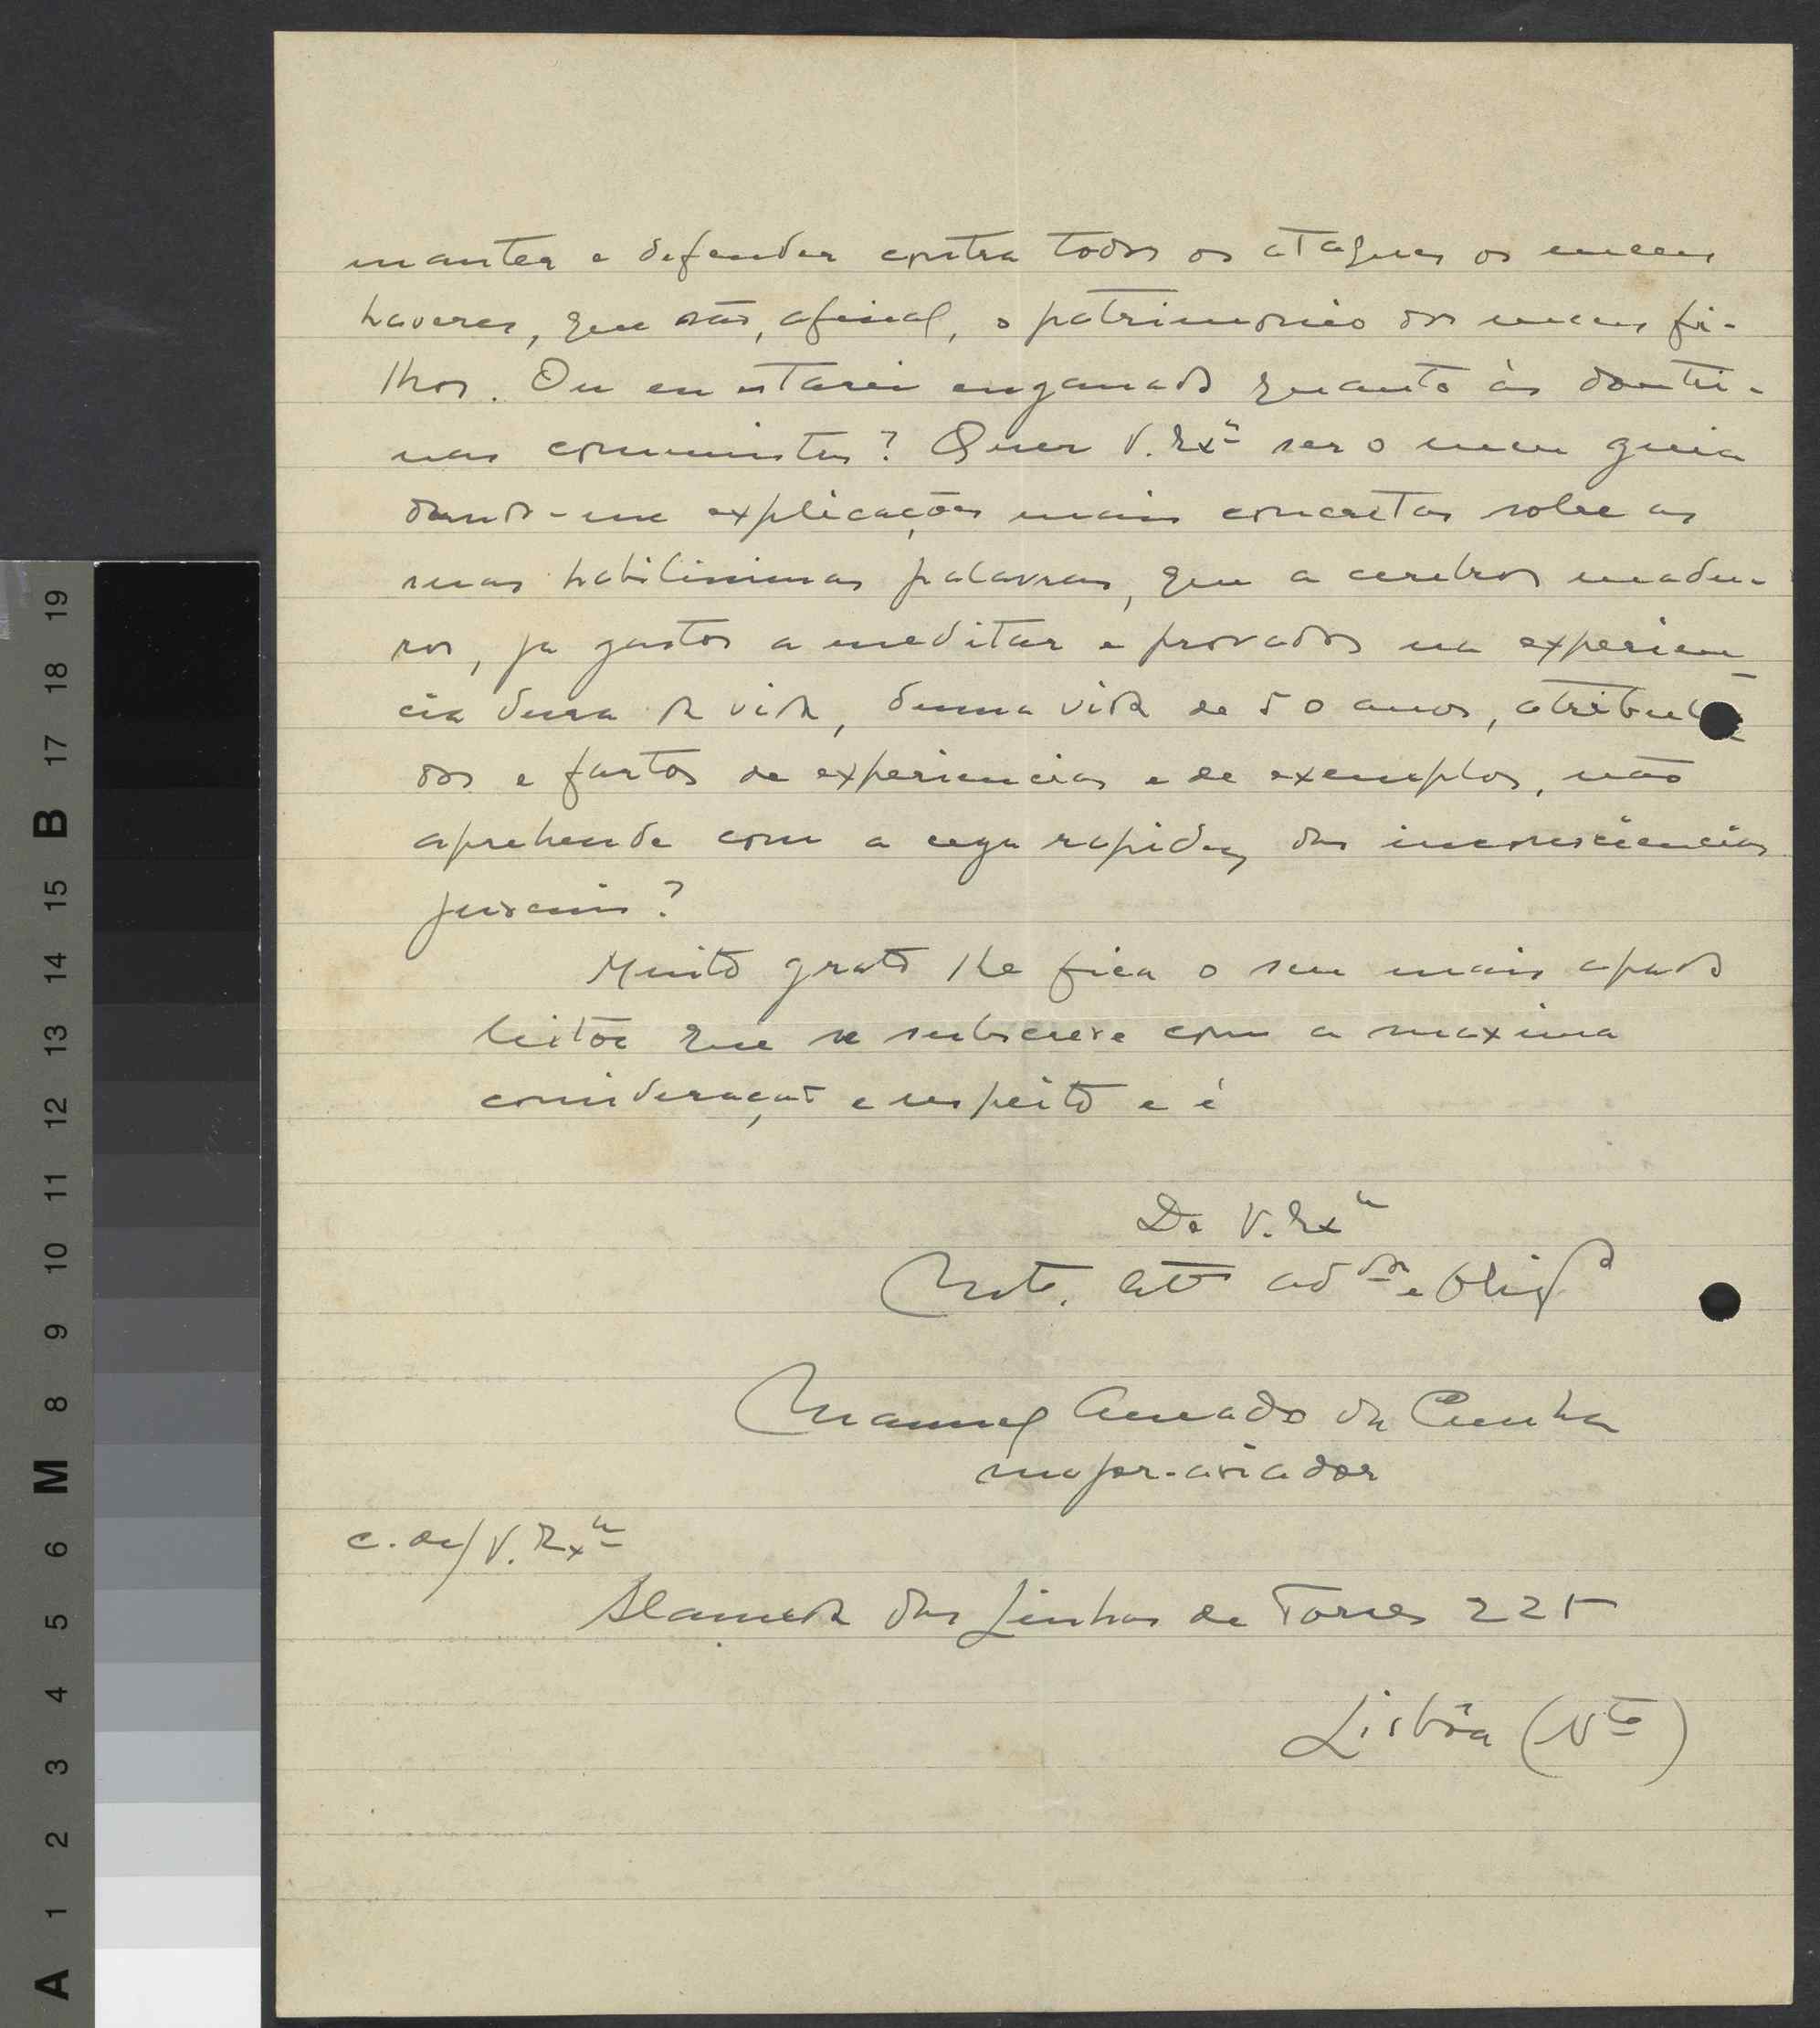 manter e defender contra todos os ataques os meus
haveres, que são, afinal, o patrimonio dos meus fi-
lhos. Ou eu estarei enganado quanto às doutri-
nas comunistas? Quer V. Exª ser o meu guia
dando-me explicações mais concretas sobre as
suas habilissimas palavras, que a cerebros madu-
ros, ja gastos a meditar e provados na experien
cia dura da vida, duma vida de 50 anos, atribula
dos e fartos de experiencias e de exemplos, não
aprehende com a cega rapidez das inconsciencias
juvenis?
Muito grato lhe fica o seu mais apagado
leitor que se subscreve com a maxima
consideraçao e respeito e é
De V. Exª
Mto. atto ador e Obrigdo
Manuel Amado da Cunha
major-aviador
c. de/ V. Exª
Alameda das Linhas de Torres 225
Lisbôa (Nte)
A 1 2 3 4 5 6 M 8 9 10 11 12 13 14 15 B 17 18 19